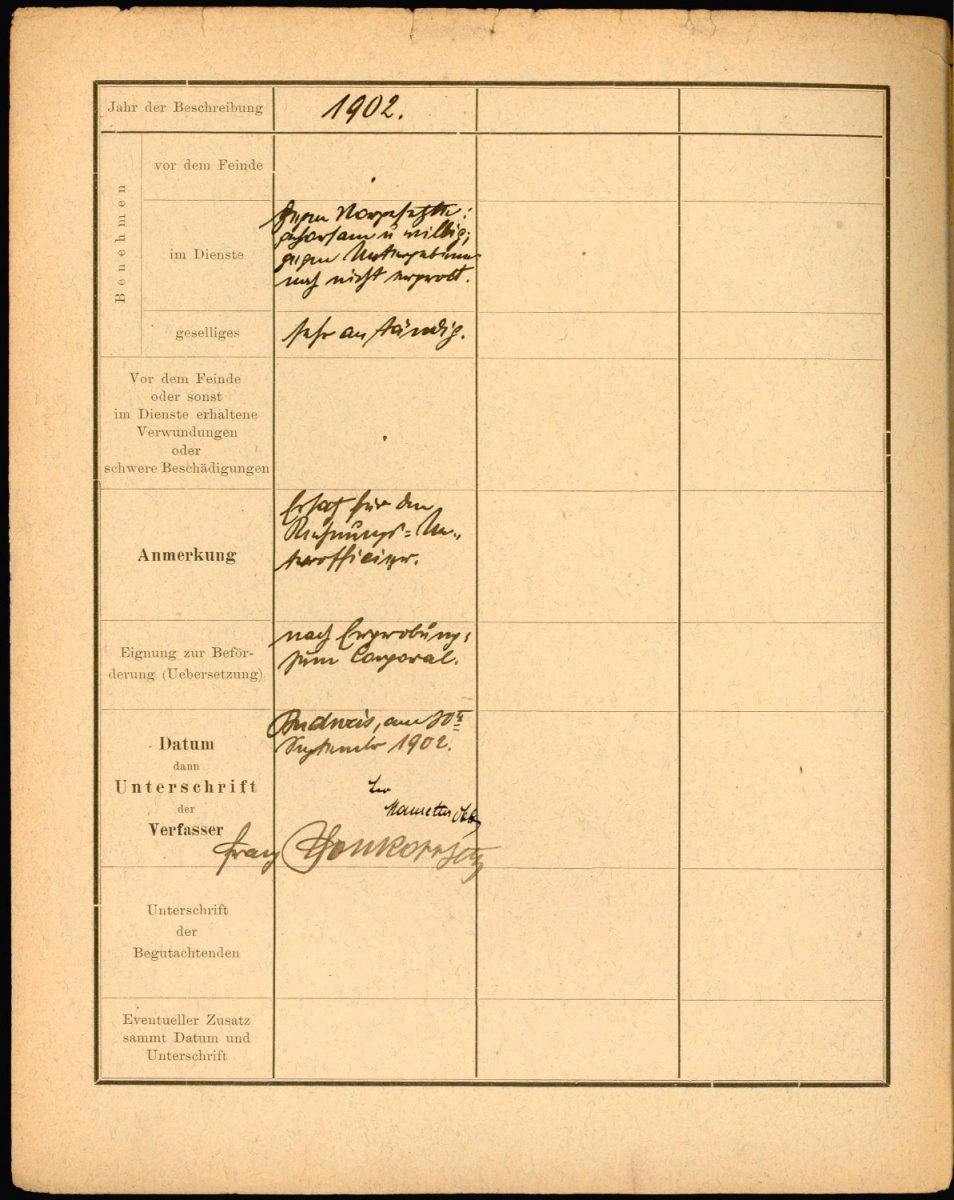 Jahr der Beschreibung
1902.
Benehmen
vor dem Feinde
im Dienste
gegen Vorgesetzte:
gehorsam u willig;
gegen Untergebene
noch nicht erprobt.
geselliges
sehr anständig.
Vor dem Feinde
oder sonst
im Dienste erhaltene
Verwundungen
oder
schwere Beschädigungen
Anmerkung
Ersatz für den
Rechnungs-Un-
terofficier.
Eignung zur Beför-
derung (Uebersetzung)
nach Erprobung:
zum Corporal.
Datum
dann
Unterschrift
der
Verfasser
Budweis, am 30ten
September 1902.
Franz
Unterschrift
der
Begutachtenden
Eventueller Zusatz
sammt Datum und
Unterschrift